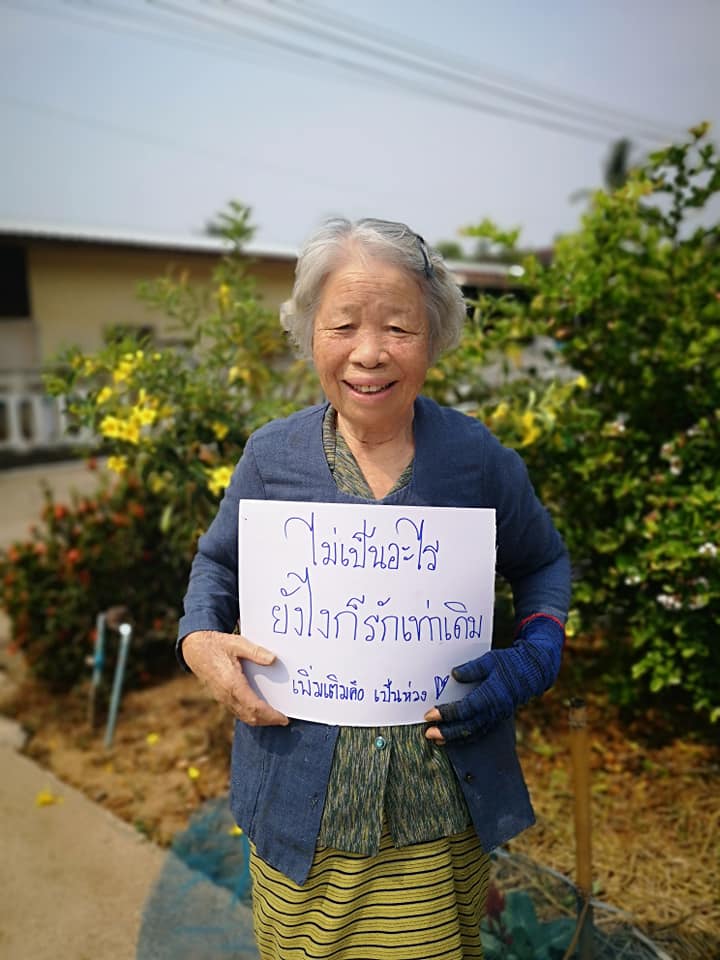 ไม่เป็นอะไร
ยังไงก็รักเท่าเดิม
เพิ่มเติมคือ เป็นห่วง ♡